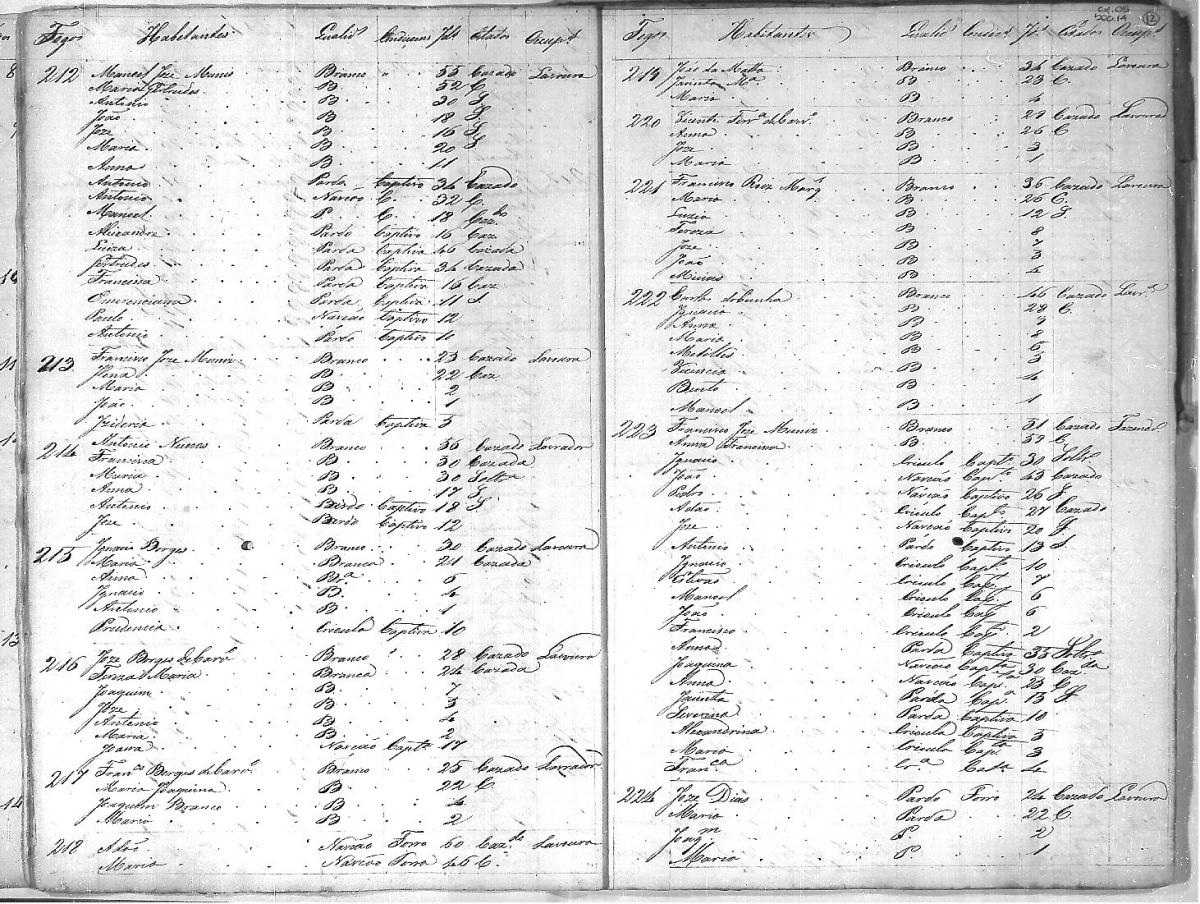 Fogos Habitantes Qualid.s Condicoens Id.e Estados Occup.s
212 Manoel Joze Munis Branco 55 Cazado Lavoura
Maria Gertrudes B 52 C.
Antonio B 30 S.
João B 18 S.
Joze B 16 S
Maria B 20 S
Anna B 11
Antonio Pardo Captivo 34 Cazado
Antonio Narcão C. 32 C.
Manoel P C. 18 Caz.do
Alexandre Pardo Captivo 16 Caz.
Luiza Parda Captiva 46 Cazada
Gertrudes Parda Captiva 34 Cazada
Francisca Parda Captiva 16 Caz
Emerenciana Parda Captiva 11 S
Paulo Narcão Captivo 12
Antonio Pardo Captivo 10
213 Francisco Joze Muniz Branco 23 Cazado Lavoura
B 22 Caz
Maria B 2
João B 1
Izideria Parda Captiva 5
214 Antonio Nunes Branco 36 Cazado Lavrador
Francisca B 30 Cazada
Maria B 30 Solt.a
Anna B 17 S.
Antonio Pardo Captivo 18 S
Joze Pardo Captivo 12
215 Ignacio Borges Branco 30 Cazado Lavoura
Maria Branca 21 Cazada
Anna B.a 6
Ignacio B. 4
Antonio B. 1
Prudencia Crioula Captiva 10
216 Joze Borges de Carv.o Branco 28 Cazado Lavoura
Tereza Maria Branca 24 Cazada
Joaquim B. 7
Joze B 5
Antonio B 4
Maria B 2
Joana Narcão Capt.a 17
217 Fran.co Borges de Carv.o Branco 25 Cazado Lavrador
Maria Joaquina B 22 C.
Joaquim Branco B 4
Maria B 2
218 Adão Narcão Forro 60 Caz.do Lavoura
Maria Narcão Forra 46 C.
cx. 09
doc.14
12
Fogos Habitantes Qualid.s Condic.s Id.e Estados Occup.s
219 João da Matta Branco 34 Cazado Lavoura
Jacinta M.a B 23 C.
Maria B 4
220 Vicente Ferr.a de Carv.o Branco 29 Cazado Lavoura
Anna B 26 C
Joze B 3
Maria B 1
221 Francisco Roiz Marq.s Branco 36 Cazado Lavoura
Maria B 26 C.
Luzia B 12 S.
Tereza B 8
Joze B 7
João B 3
B 4
222 Carlos da Cunha Branco 46 Cazado Lav.a
Ignacia B 28 C.
Anna B 3
Maria B 8
Matildes B 6
Vicencia B 3
Bento B 4
Manoel B 1
223 Francisco Joze Muniz Branco 51 Cazado Fazend.o
Anna Francisca B 59 C
Ignacio Crioulo Capt.o 30 Soltr.o
João Narcão Cap.to 43 Cazado
Pedro Narcão Captivo 26 S.
Adão Crioulo Cap.to 27 Cazado
Joze Narcão Captivo 20 S.
Antonio Pardo Captivo 13 S.
Ignacio Crioulo Capt.o 10
Estevão Crioulo Capt. 7
Manoel Crioulo Cap.to 6
João Crioulo Cap.to 6
Francisco Crioulo Cap.to 2
Anna Parda Captiva 35 Soltr.a
Joaquina Narcão Capt.a 30 Caz.da
Anna Narcão Cap.ta 23 C
Jacinta Parda Cap.a 15 S.
Severina Parda Captiva 10
Alexandrina Crioula Captiva 5
Maria Crioula Capt.a 3
Fran.ca Cr.a Cat.a 4
224 Joze Dias Pardo Forro 24 Cazado Lavoura
Maria Parda 22 C.
Joaq.m P. 2
Maria P. 1